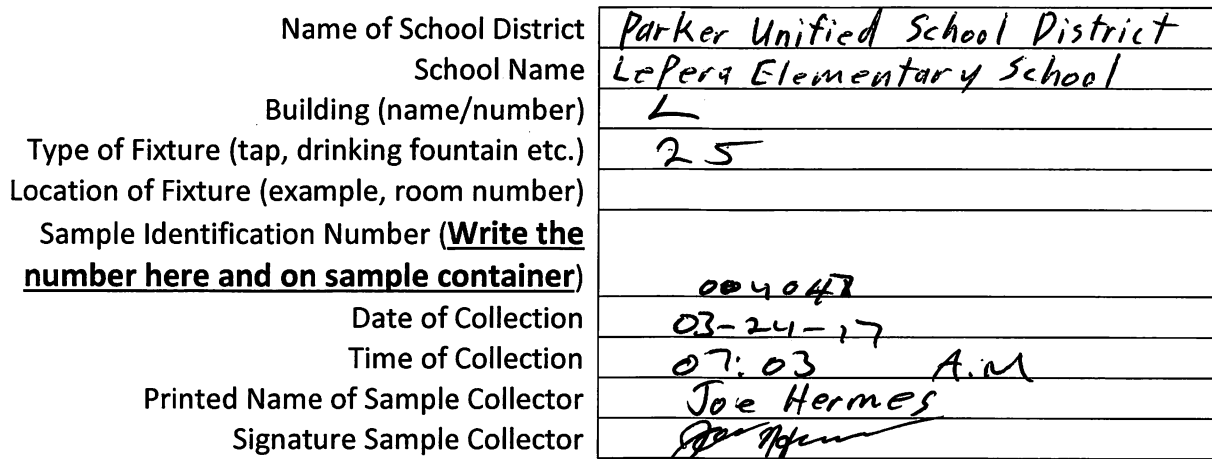 Name of School District Parker Unified School District
School Name LePera Elementary School
Building (name/number) L
Type of Fixture (tap, drinking fountain etc.) 25
Location of Fixture (example, room number)
Sample Identification Number (Write the
number here and on sample container)
Date of Collection 03-24-17
Time of Collection 07:03 A.M
Printed Name of Sample Collector Joe Hermes
Signature Sample Collector